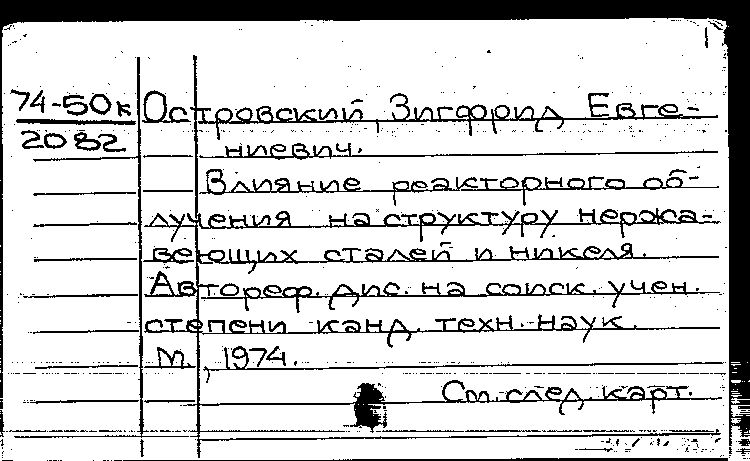 74-50к Островский, Зигфрид Евге-
2082 ниевич.
Влияние реакторного об-
лучения на структуру нержа-
веющих сталей и никеля.
Автореф. дис. на соиск. учен.
степени канд. техн. наук.
М., 1974.
См. след. карт.